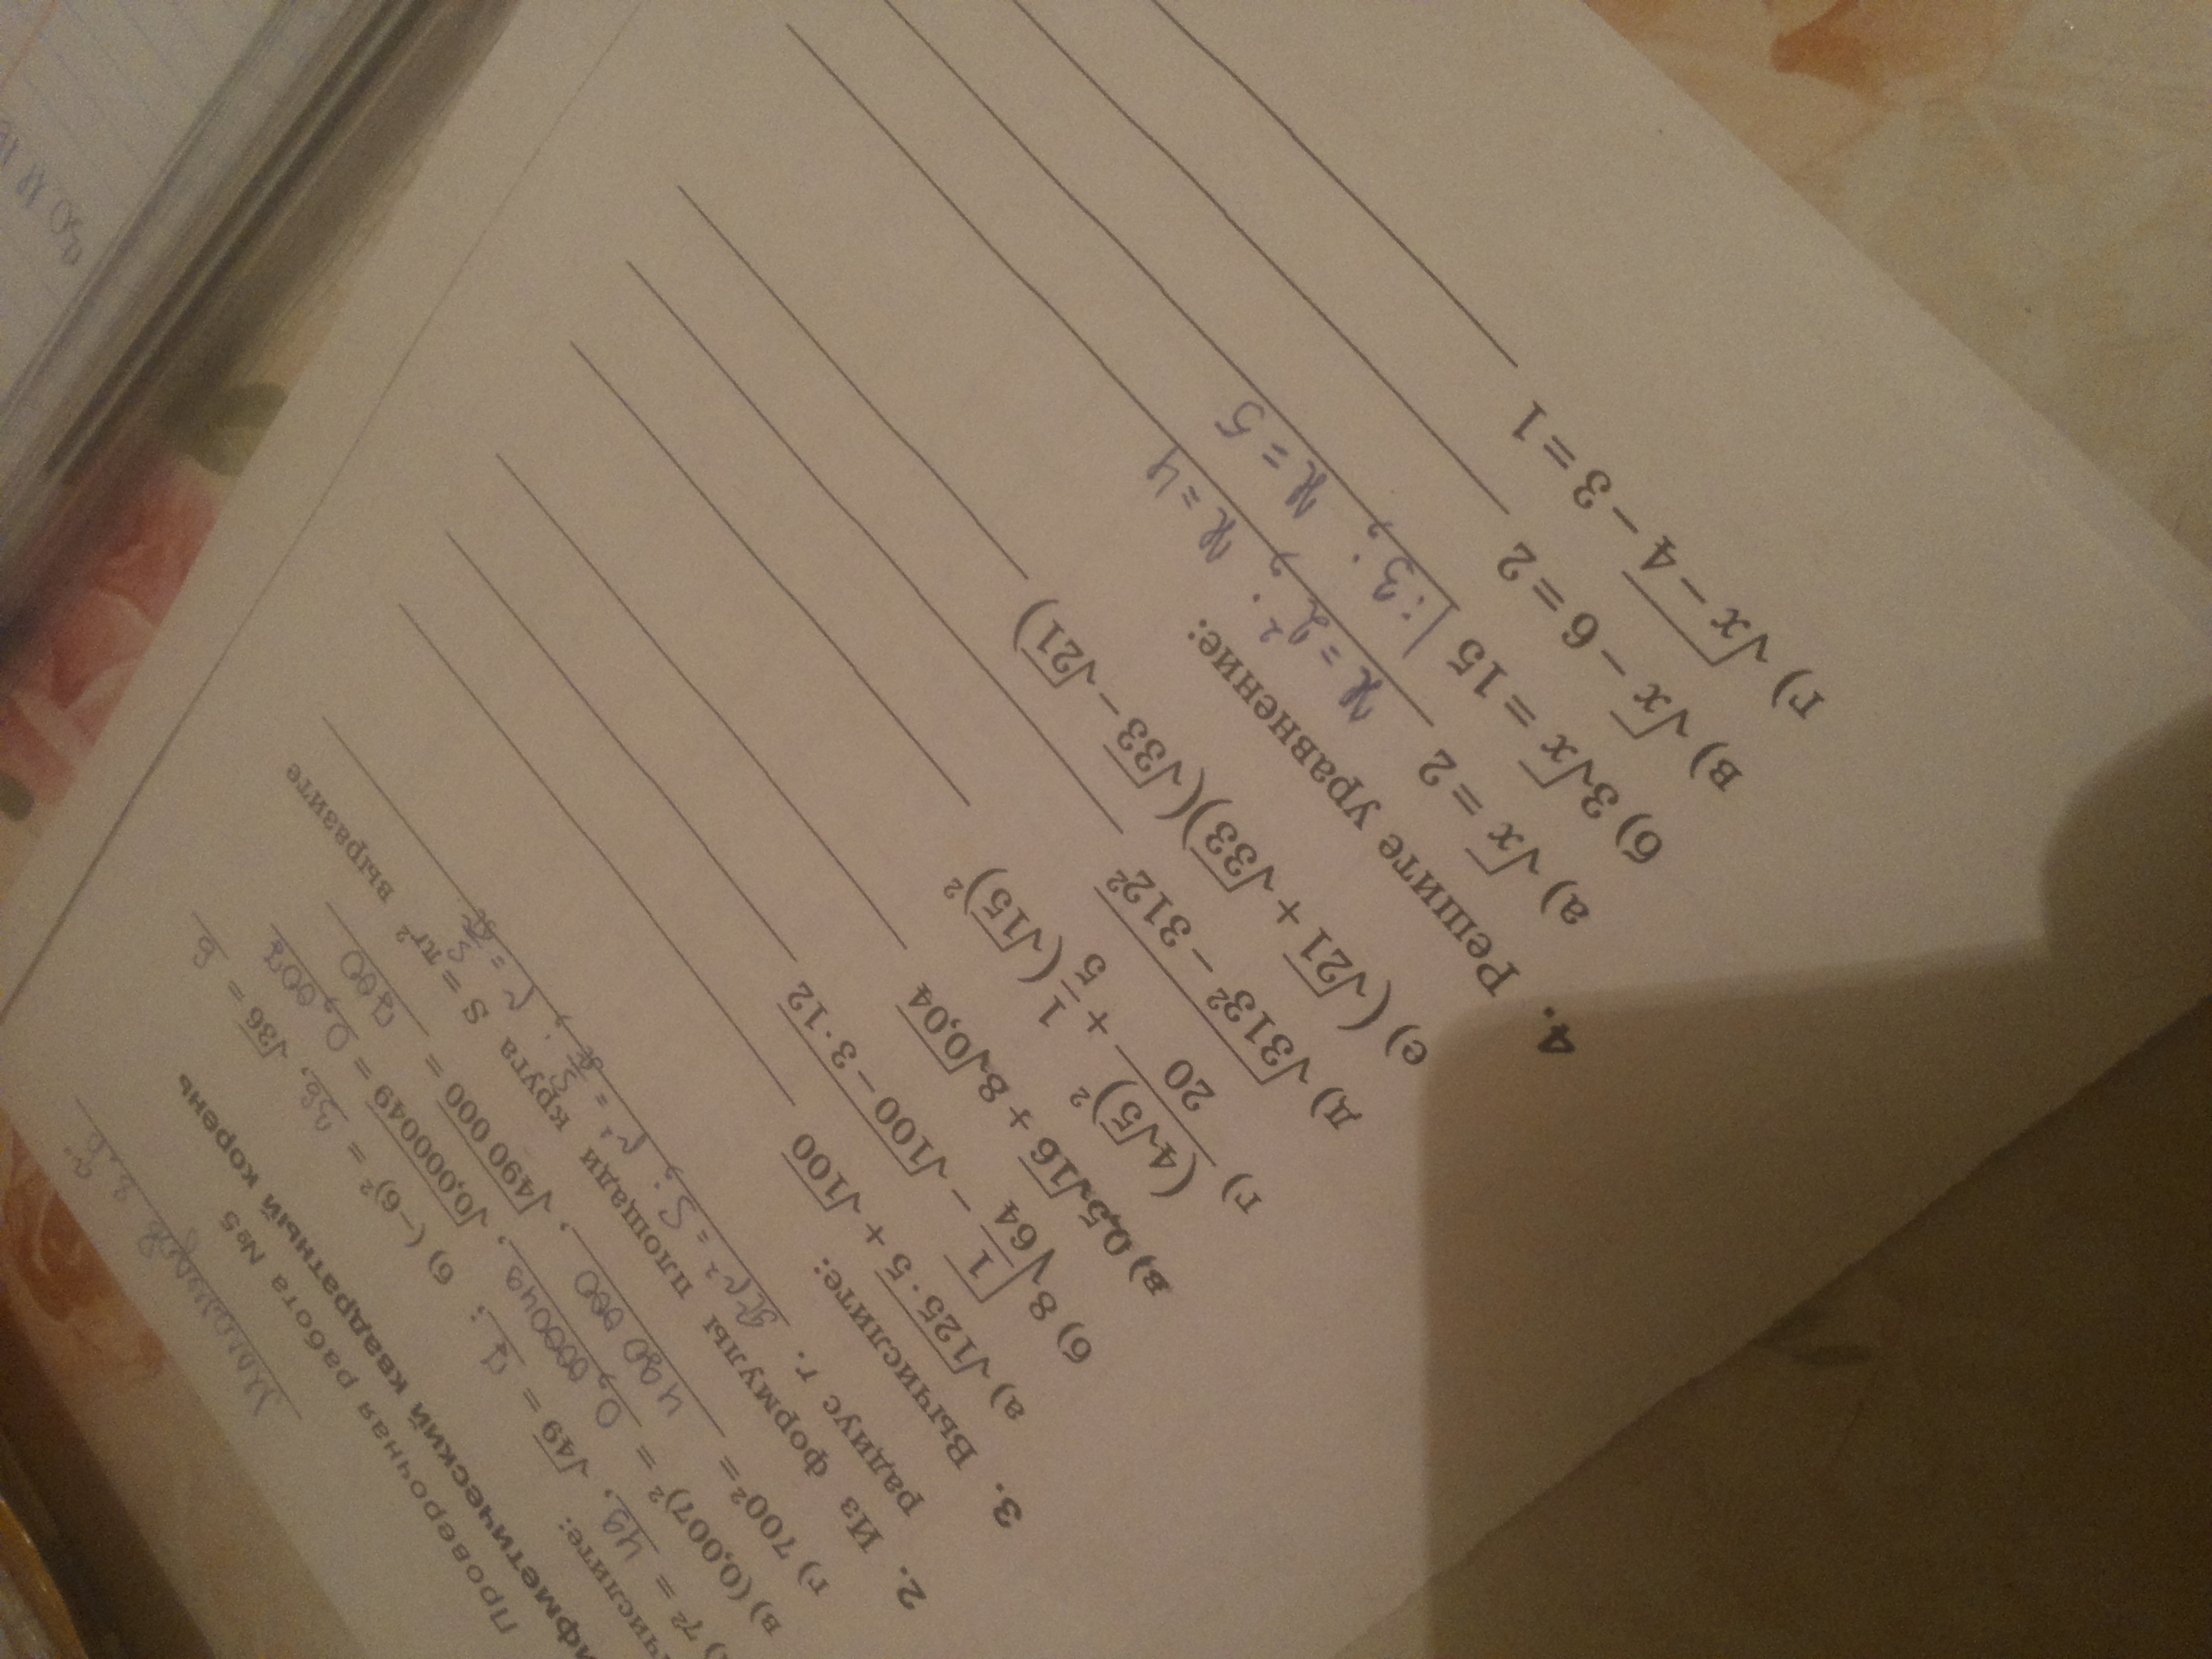 Проверочная работа №5
ифметический квадратный корень
числите:
) 7² = 49, √49 = 7; б) (−6)² = 36, √36 = 6
в) (0,007)² = 0,000049, √0,000049 = 0,007
г) 700² = 490 000, √490 000 = 700
2. Из формулы площади круга S = πr² выразите
радиус r. πr² = S;
3. Вычислите:
а) √125·5 + √100
б) 8√1/64 − √100 − 3·12
в) 0,5√16 + 8√0,04
г) (4√5)²/20 + 1/5 (√15)²
д) √313² − 312²
е) (√21 + √33)(√33 − √21)
4. Решите уравнение:
а) √x = 2 x = 2²; x = 4
б) 3√x = 15 |:3; x = 5
в) √x − 6 = 2
г) √x − 4 − 3 = 1